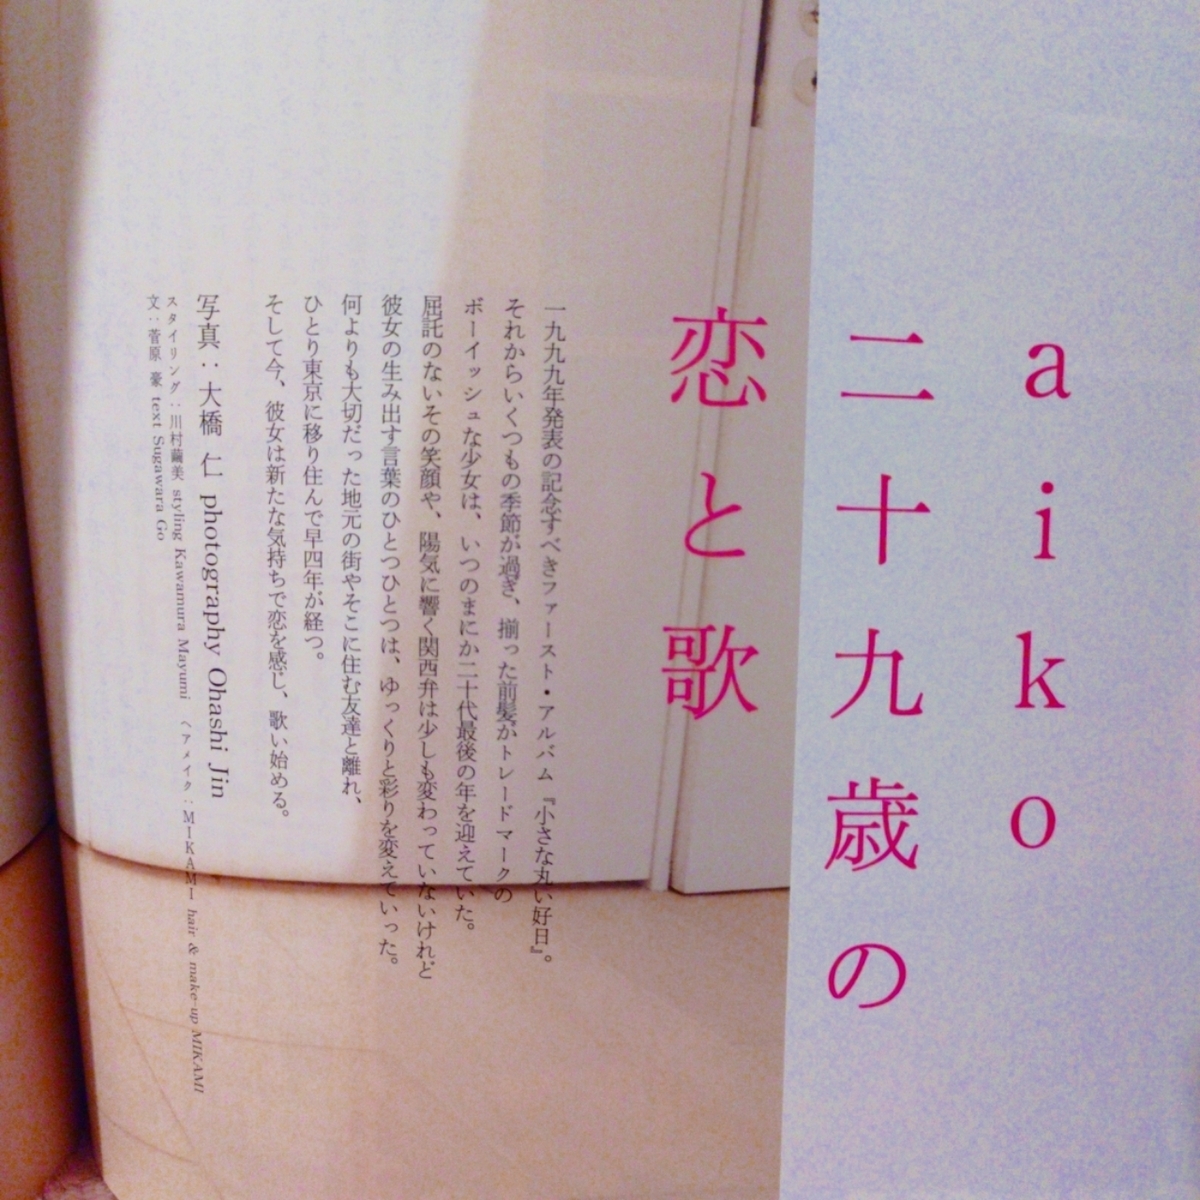 aiko
二十九歳の
恋と歌
一九九九年発表の記念すべきファースト・アルバム『小さな丸い好日』。
それからいくつもの季節が過ぎ、揃った前髪がトレードマークの
ボーイッシュな少女は、いつのまにか二十代最後の年を迎えていた。
屈託のないその笑顔や、陽気に響く関西弁は少しも変わっていないけれど
彼女の生み出す言葉のひとつひとつは、ゆっくりと彩りを変えていった。
何よりも大切だった地元の街やそこに住む友達と離れ、
ひとり東京に移り住んで早四年が経つ。
そして今、彼女は新たな気持ちで恋を感じ、歌い始める。
写真：大橋 仁 photography Ohashi Jin
スタイリング：川村繭美 styling Kawamura Mayumi ヘアメイク：MIKAMI hair & make-up MIKAMI
文：菅原 豪 text Sugawara Go